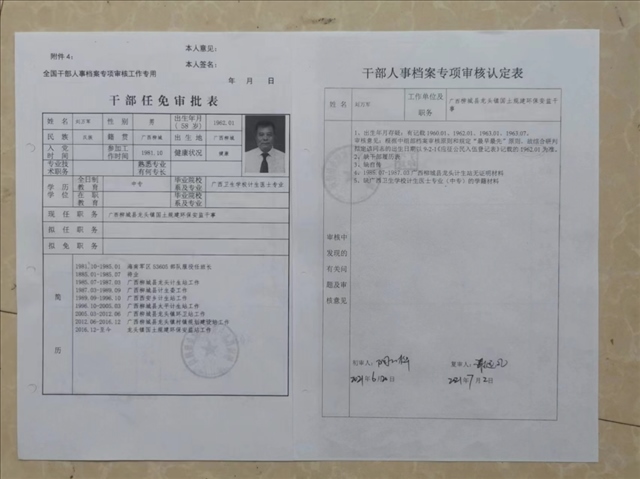 附件4：
本人意见：
本人签名：
全国干部人事档案专项审核工作专用
年 月 日
干部任免审批表
姓名
性别 男
出生年月
（59岁） 1962.01
民族
籍贯 广西柳城
出生地 广西柳城
入党时间
参加工作时间 1981.10
健康状况 健康
专业技术职务
熟悉专业有何专长
学历学位
全日制教育 中专
毕业院校系及专业 广西卫生学校计生医士专业
在职教育
毕业院校系及专业
现任职务 广西柳城县龙头镇国土规建环保安监干事
拟任职务
拟免职务
简历
1981.10-1985.01 海南军区 53603 部队服役任班长
1985.01-1985.07 待业
1985.07-1987.03 广西柳城县龙头计生站工作
1987.03-1989.09 广西柳城县计生委工作
1989.09-1996.10 广西柳城县
1996.10-2005.03 广西柳城县太平计生站工作
2005.03-2012.06 广西柳城县龙头镇环卫站工作
2012.06-2016.12 广西柳城县龙头镇
2016.12-至今 龙头镇国土规建环保安监站工作
干部人事档案专项审核认定表
姓名
工作单位及职务
广西柳城县龙头镇国土规建环保安监干事
审核中发现的有关问题及审核意见
1、出生年月存疑：有记载1960.01、1962.01、1963.01、1963.07。
审核意见：根据干部档案审核原则和规定“最早最先”原则，故综合研判
认定该同志的出生日期以 9-2-1《
2、缺干部履历表
4、1985.07-1987.03 广西柳城县龙头计生站无证明材料
5、缺广西卫生学校计生医士专业（中专）的学籍材料
初审人：
复审人：
2021年6月20日
2021年7月2日